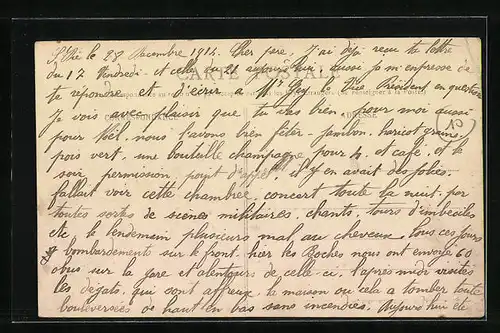 St Dié le 28 Decembre 1914. Cher pere, J'ai déjà recu ta lettre
du 17 Vendredi et celle du 21 aujourd'hui, aussi je m'empresse de
te repondre et d'écrire a Mr Rey le Vice Président en question
CARTE POSTALE
je vois avec plaisir que tu vas bien pour moi aussi
CORRESPONDANCE
ADRESSE
pour Noël, nous l'avons bien fêter. Jambon, haricot grains,
pois vert, une bouteille champagne pour 4, et café, et le
soir permission point d'appel, il y en avait des folies.
fallait voir cette chambrée, concert toute la nuit, par
toutes sortes de scènes militaires, chants, tours d'imbeciles
etc, le lendemain plusieurs mal au cheveux, tous ces jours
bombardements sur le front. hier les Boches nous ont envoyés 60
obus sur la gare et alentours de celle ci, l'apres midi visités
les degats, qui sont affreux, la maison ou cela a tomber toute
bouleversées de haut en bas sans incendies. Aujourd'hui etc